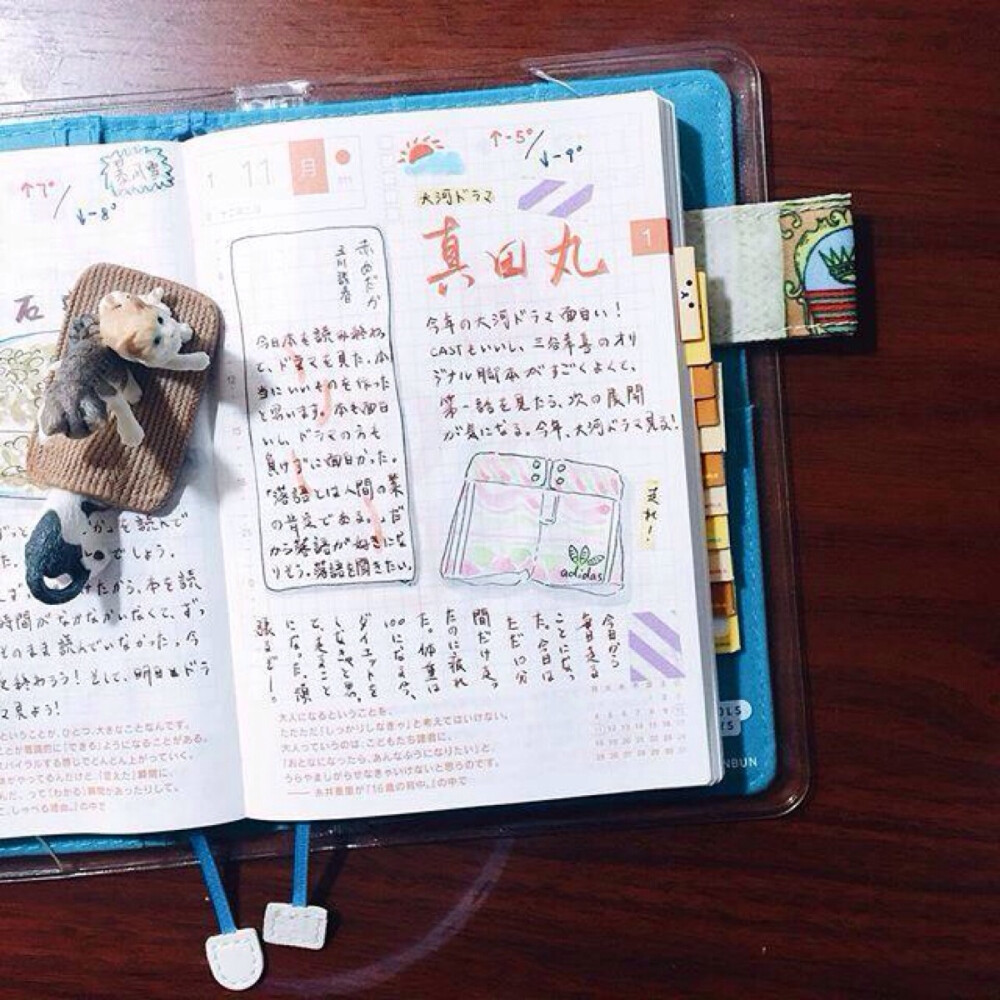 ↑7°/
↓-8°
石
を読んで
でしょう。
たから、本を読
時間がなかなかいなくて、ずっ
そのまま読んでいなかった。今
を終わろう!そして、明日はドラ
マ見よう!
いうことが、ひとつ、大きなことなんです。
ことが意識的に「できる」ようになることがある。
パイラルする感じでとんとん上がっていく。
がやってるんだけど、「言えた」瞬間に、
んだ、って「わかる」瞬間があったりして。
と、しゃべる理由。』の中で
1 11 月
↑-5°/
↓-9°
大河ドラマ
真田丸
1
赤めだか
立川談春
今日本を読み終わっ
と、ドラマを見た。本
当にいいものを作った
と思います。本も面白
いし、ドラマの方も
負けずに面白かった。
「落語とは人間の業
の肯定である。」だ
から落語が好きにな
りそう。落語を聞きたい。
今年の大河ドラマ面白い!
CASTもいいし、三谷幸喜のオリ
ジナル脚本がすごくよくて、
第一話を見たら、次の展開
が気になる。今年、大河ドラマ見る!
adidas
今日から
毎日走る
ことになっ
た。今日は
ただ10分
間だけ走っ
たのに疲れ
た。体重は
100になる今、
ダイエットを
しなきゃと思
と、走ること
になった。頑
張るぞー。
大人になるということを、
ただただ「しっかりしなきゃ」と考えてはいけない。
大人っていうのは、こどもたち諸君に、
「おとなになったら、あんなふうになりたい」と、
うらやましがらせなきゃいけないと思うのです。
―― 糸井重里が『16歳の背中。』の中で